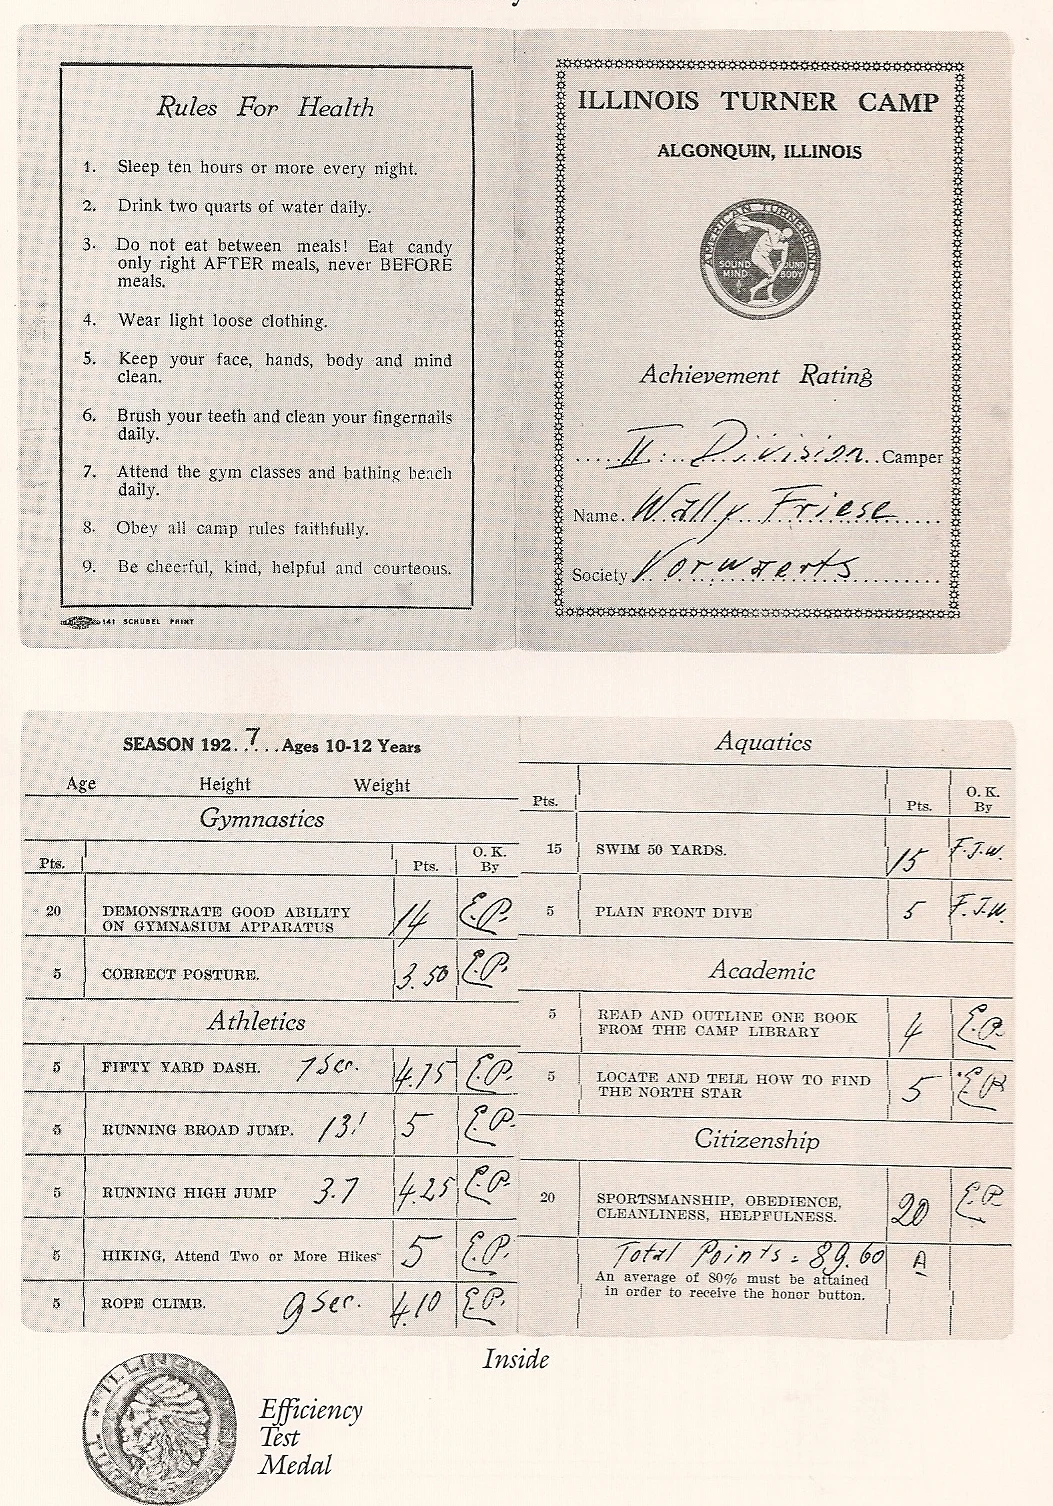 Rules For Health
1. Sleep ten hours or more every night.
2. Drink two quarts of water daily.
3. Do not eat between meals! Eat candy
only right AFTER meals, never BEFORE
meals.
4. Wear light loose clothing.
5. Keep your face, hands, body and mind
clean.
6. Brush your teeth and clean your fingernails
daily.
7. Attend the gym classes and bathing beach
daily.
8. Obey all camp rules faithfully.
9. Be cheerful, kind, helpful and courteous.
141 SCHUBEL PRINT
ILLINOIS TURNER CAMP
ALGONQUIN, ILLINOIS
AMERICAN TURNERBUND
SOUND SOUND
MIND BODY
Achievement Rating
II Division Camper
Name. Wally Friese
Society Vorwaerts
SEASON 1927 Ages 10-12 Years
Age Height Weight
Gymnastics
Pts. Pts. O. K. By
20 DEMONSTRATE GOOD ABILITY 14 E.P.
ON GYMNASIUM APPARATUS
5 CORRECT POSTURE. 3.50 E.P.
Athletics
5 FIFTY YARD DASH. 7 Sec. 4.75 E.P.
5 RUNNING BROAD JUMP. 13' 5 E.P.
5 RUNNING HIGH JUMP 3.7 4.25 E.P.
5 HIKING, Attend Two or More Hikes 5 E.P.
5 ROPE CLIMB. 9 Sec. 4.10 E.P.
Aquatics
Pts. Pts. O. K. By
15 SWIM 50 YARDS. 15 F.J.W.
5 PLAIN FRONT DIVE 5 F.J.W.
Academic
5 READ AND OUTLINE ONE BOOK 4 E.P.
FROM THE CAMP LIBRARY
5 LOCATE AND TELL HOW TO FIND 5 E.P.
THE NORTH STAR
Citizenship
20 SPORTSMANSHIP, OBEDIENCE, 20 E.P.
CLEANLINESS, HELPFULNESS.
Total Points = 89.60 A
An average of 80% must be attained
in order to receive the honor button.
Inside
ILLINOIS
Efficiency
Test
Medal